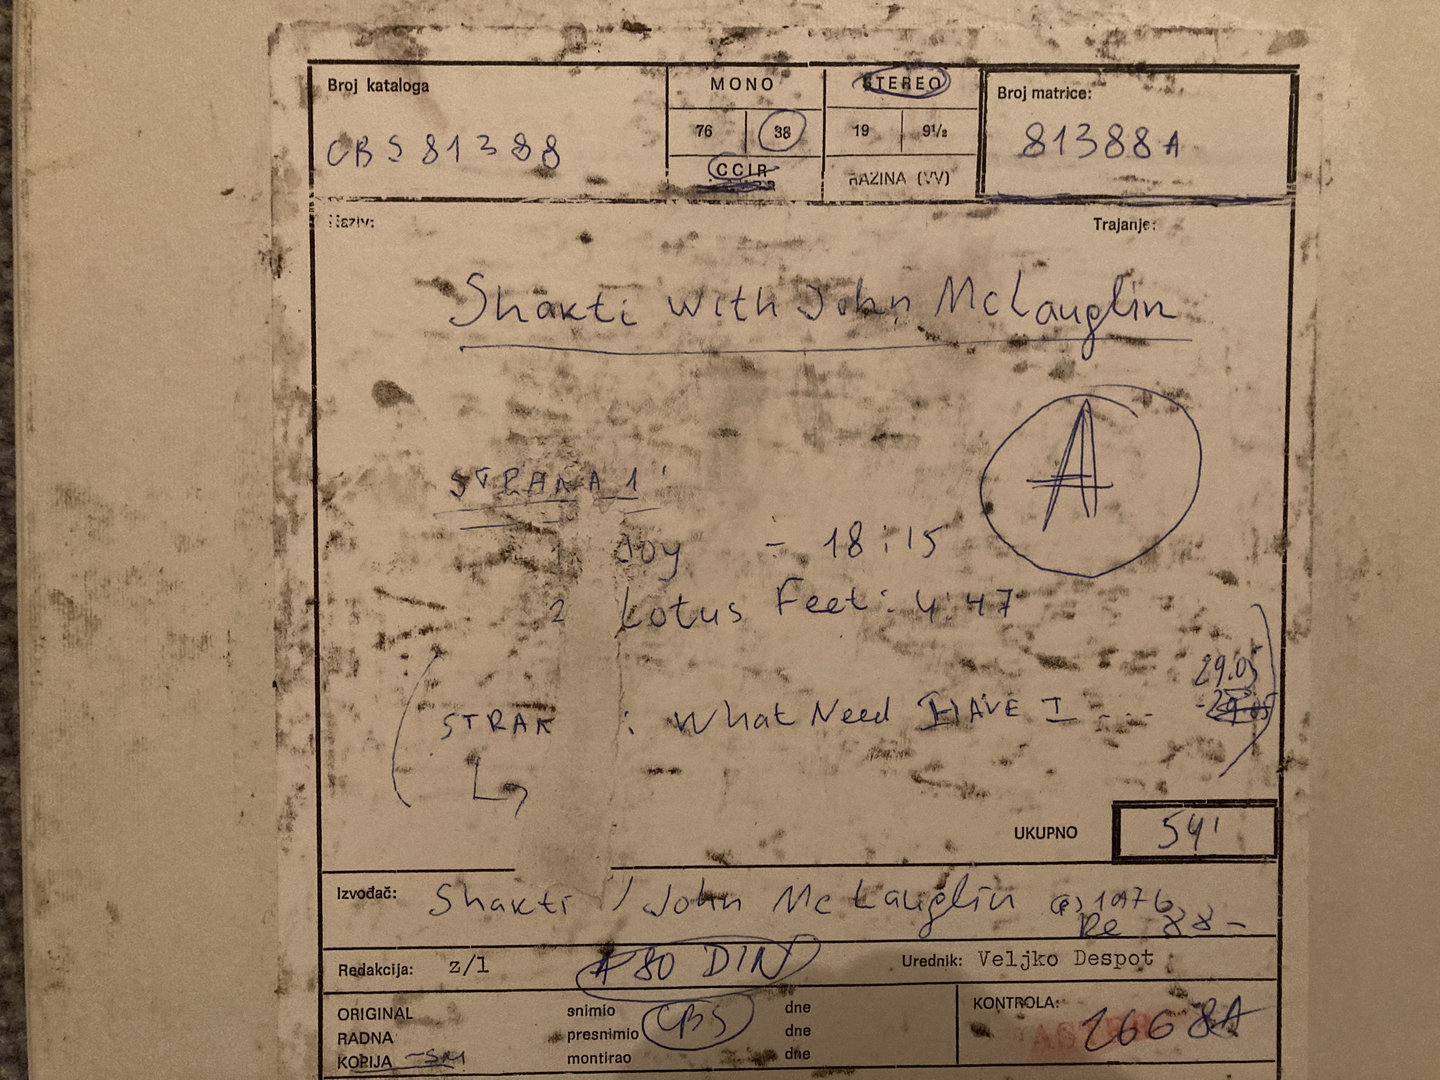 Broj kataloga
MONO
STEREO
Broj matrice:
CBS 81388
76 38 19 9½
81388 A
CCIR
RAZINA (VV)
Naziv:
Trajanje:
Shakti with John McLauglin
A
STRANA 1
1 Joy - 18:15
2 Lotus Feet: 4:47
29.05
: What Need HAVE I ---
UKUPNO 54'
Izvođač: Shakti / John McLauglin
1976
Redakcija: z/1
80 DIN
Urednik: Veljko Despot
ORIGINAL snimio dne
RADNA presnimio CBS dne
KOPIJA montirao dne
KONTROLA: